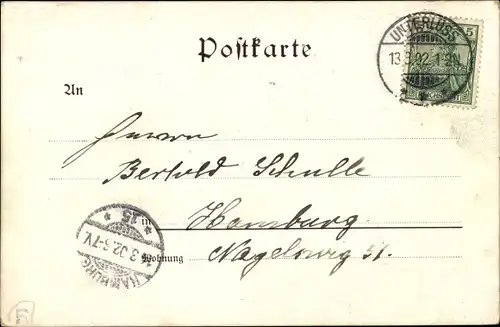 Postkarte
UNTERLÜSS
13.3.02.1-2N.
5
An
Herrn
Berthold Schulle
in Hamburg
Wohnung Nagelsweg 51.
HAMBURG
14.3.02.6-7V.
* 15 *